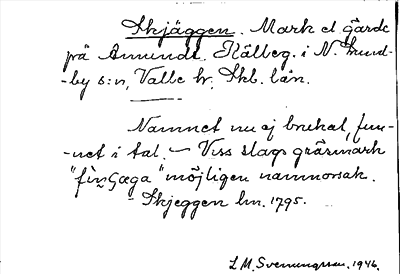 Skjäggen. Mark el. gärde
på Amunds. Källeg. i N. Lund-
-by s:n, Valle hr, Skb. län.
Namnet nu ej brukat, fun-
-net i tal. — Viss slags gräsmark
"möjligen namnorsak.
- Skjeggen lm. 1795.
L M. Svenungsson. 1946.